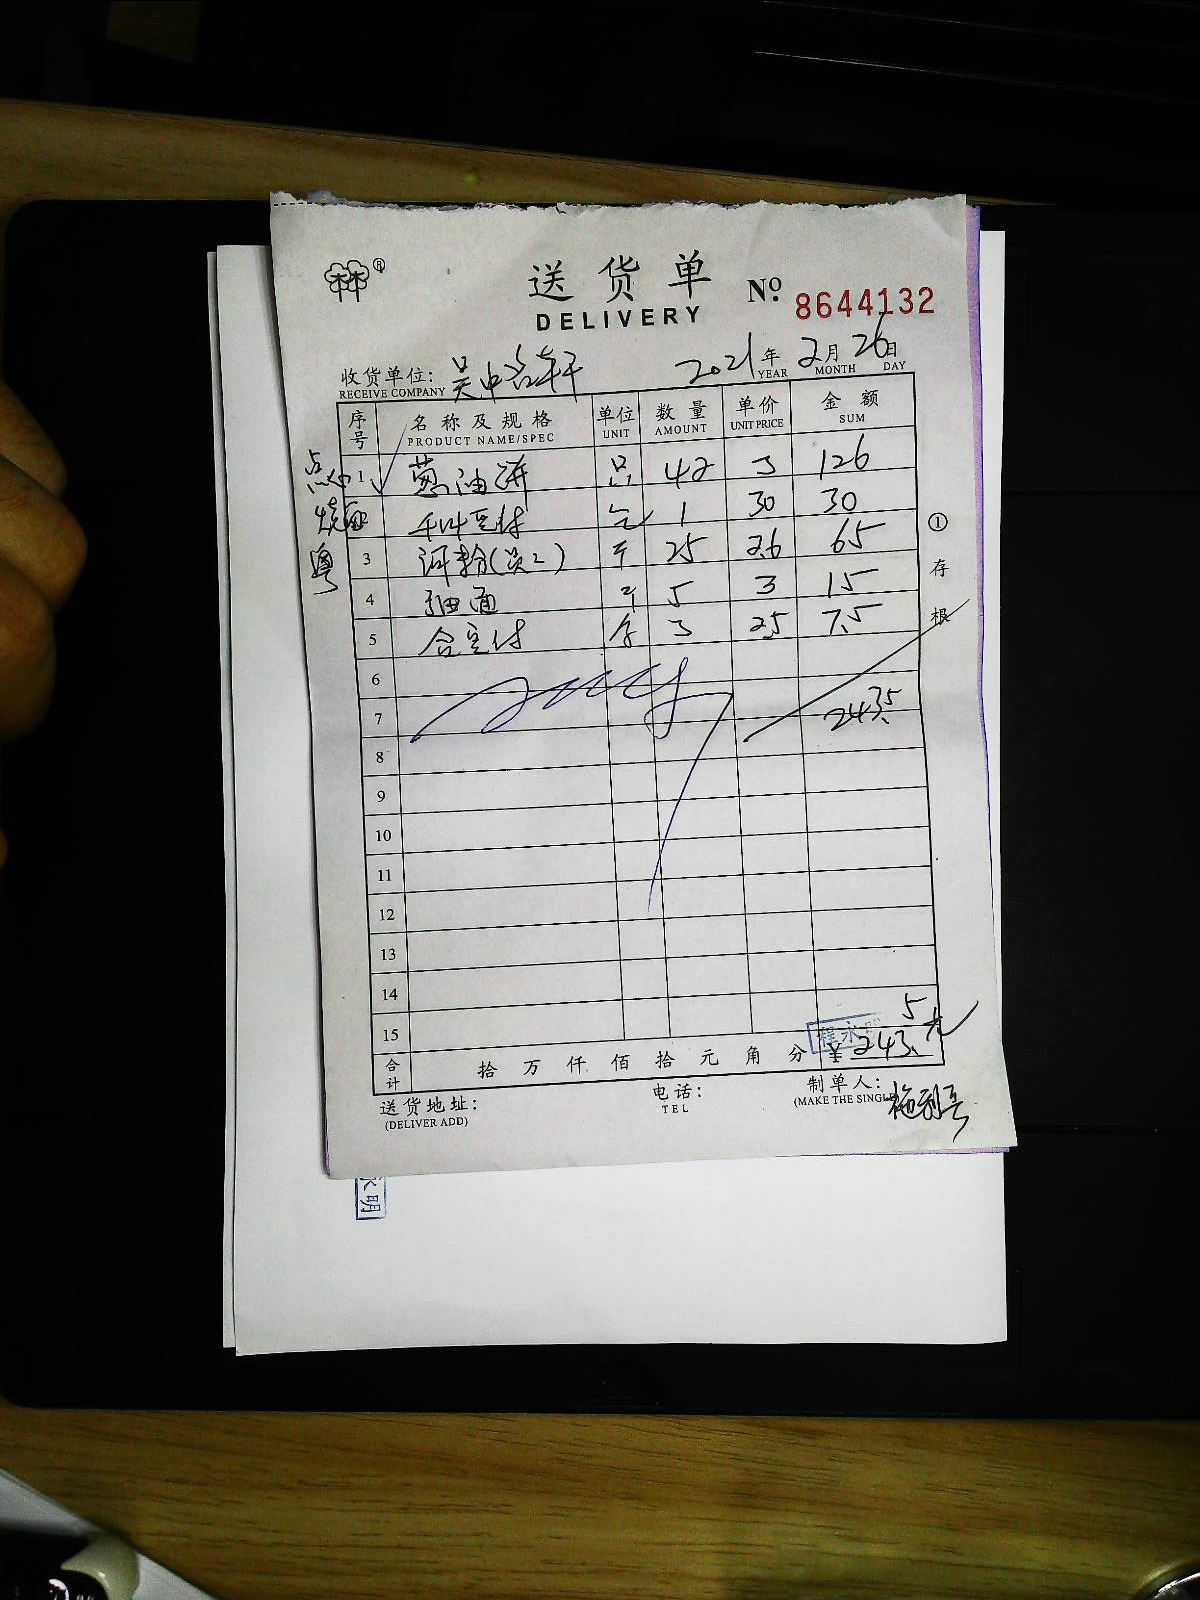 ®
送货单
DELIVERY
№ 8644132
收货单位: 吴中 轩 2021年2月26日
RECEIVE COMPANY YEAR MONTH DAY
序号 名称及规格 单位 数量 单价 金额
PRODUCT NAME/SPEC UNIT AMOUNT UNIT PRICE SUM
点心 1 葱油饼 只 42 3 126
烧 1 30 30
粤 3 河粉 斤 25 2.6 65
4 斤 5 3 15
5 3 2.5 7.5
6
7 243.5
8
9
10
11
12
13
14
15
合计 拾万仟佰拾元角分 ¥243.5元
程永明
送货地址: 电话: 制单人:
(DELIVER ADD) TEL (MAKE THE SINGLE
①存根
永明